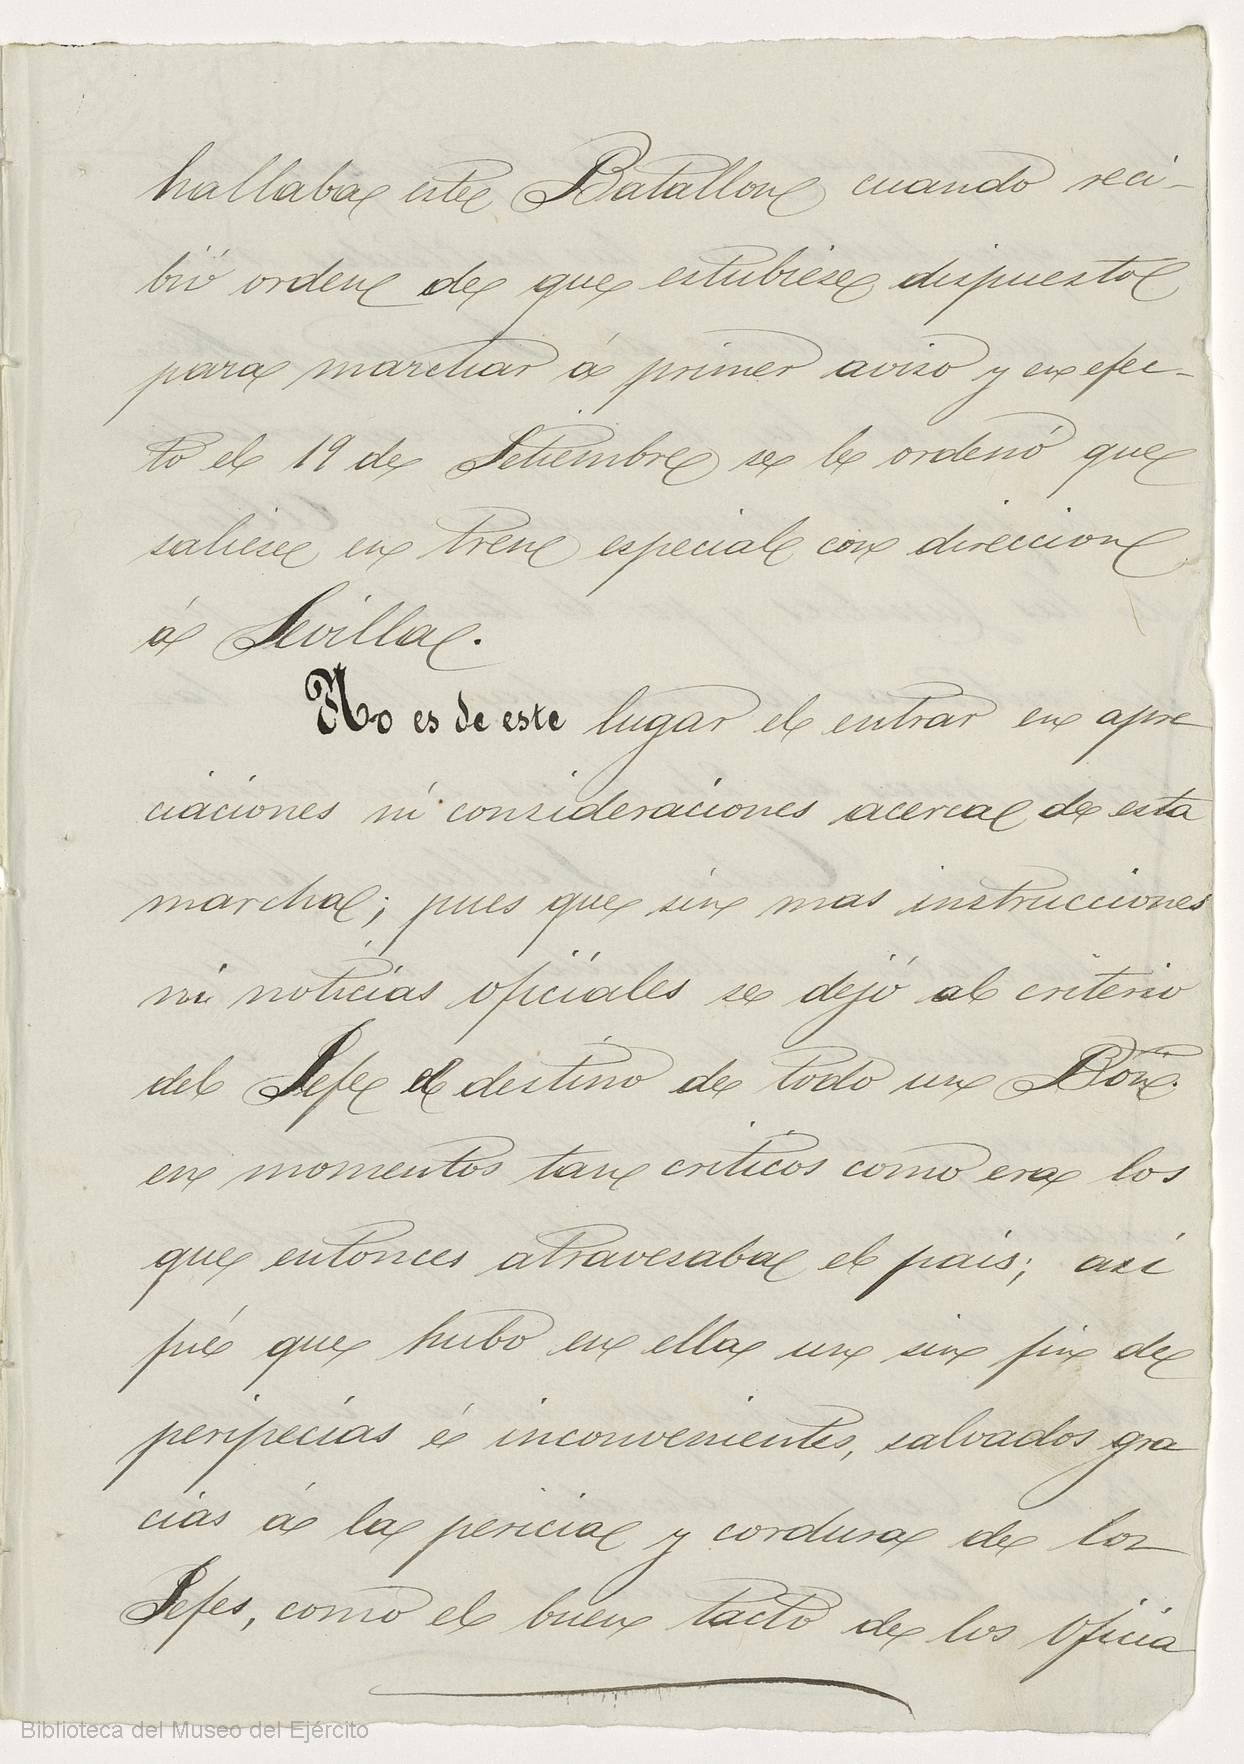 hallaba este Batallon cuando reci-
bió orden de que estubiese dispuesto
para marchar á primer aviso y en efec-
to el 19 de Setiembre se le ordenó que
saliese en tren especial con direccion
á Sevilla.
No es de este lugar el entrar en apre
ciaciones ni consideraciones acerca de esta
marcha; pues que sin mas instrucciones
ni noticias oficiales se dejó al criterio
del Jefe el destino de todo un Bón.
en momentos tan criticos como era los
que entonces atravesaba el pais; asi
fué que hubo en ella un sin fin de
peripecias é inconvenientes, salvados gra
cias á la pericia y cordura de los
Jefes, como el buen tacto de los Oficia
Biblioteca del Museo del Ejército